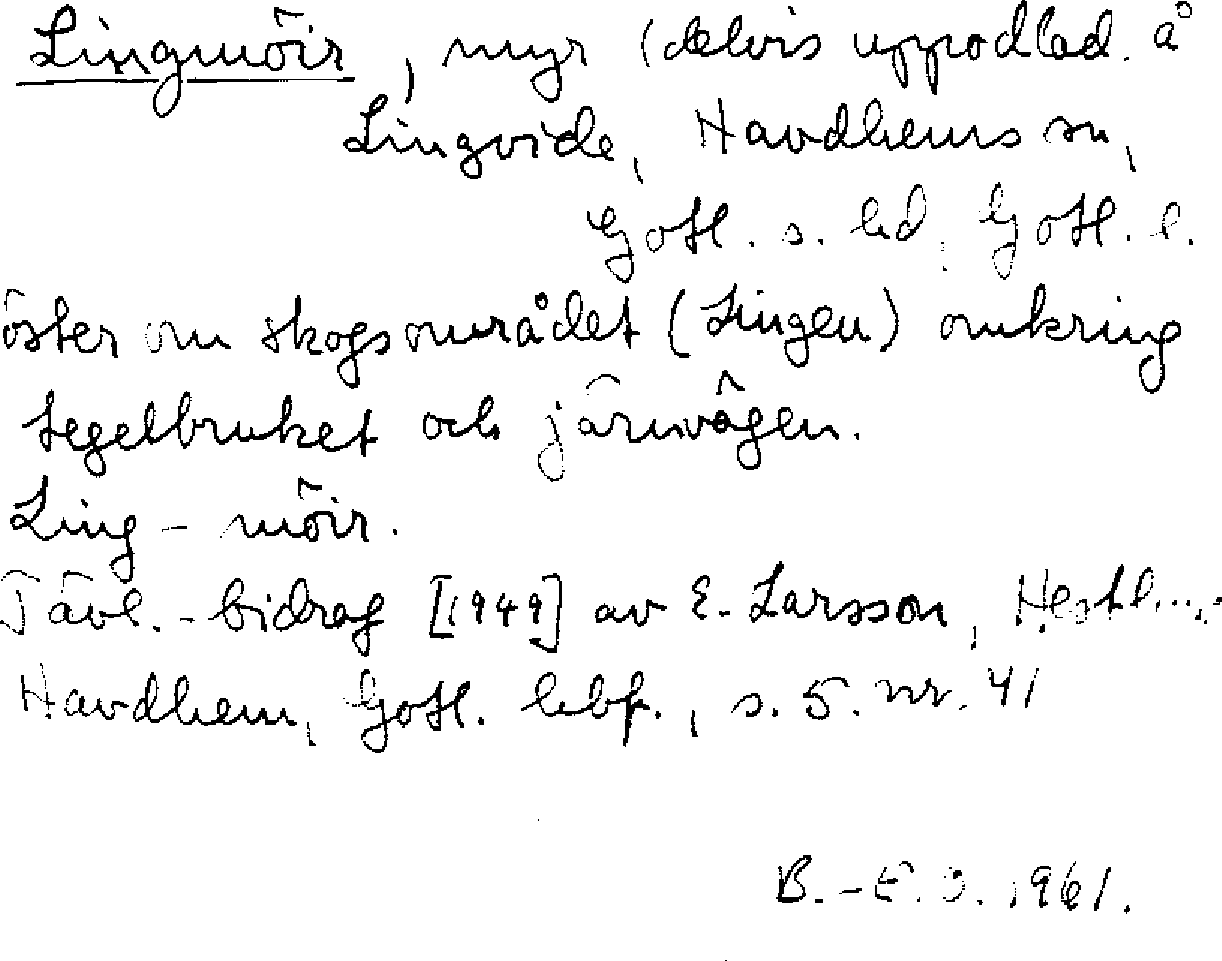 Lingmöir, myr (delvis uppodlad. å
Lingvide, Havdhems sn,
Gotl. s. hd, Gotl. l.
öster om skogsområdet (Lingen) omkring
tegelbruket och järnvägen.
Ling - möir.
Tävl.-bidrag [1949] av E. Larsson,
Havdhem, Gotl. hbf., s. 5. nr. 41
B.-E. 1961.